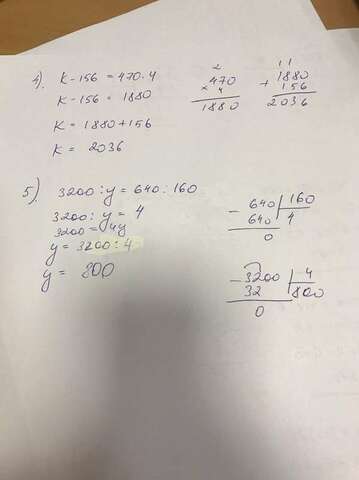 4). K - 156 = 470 · 4
K - 156 = 1880
K = 1880 + 156
K = 2036
2
470
× 4
1880
11
1880
+ 156
2036
5) 3200 : y = 640 : 160
3200 : y = 4
3200 = 4y
y = 3200 : 4
y = 800
- 640 | 160
640 | 4
0
- 3200 | 4
32 | 800
0